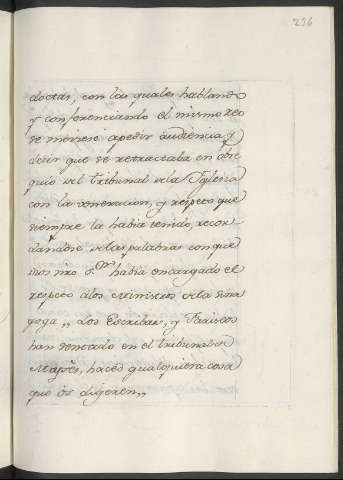 236
doctas, con las quales hablando
y conferenciando el mismo reo
se moviese apedir audiencia, y
decir que se retractaba en obse
quio del tribunal dela Yglesia
con la veneracion, y respeto que
siempre la habia tenido, recor
dandose delas palabras con que
Dios nro S.or habia encargado el
respeto álos Ministros dela sina
goga „ Los Escribas, y Fariseos
han sentado en el tribunal de
Moyses, haced qualquiera cosa
que os digeren „